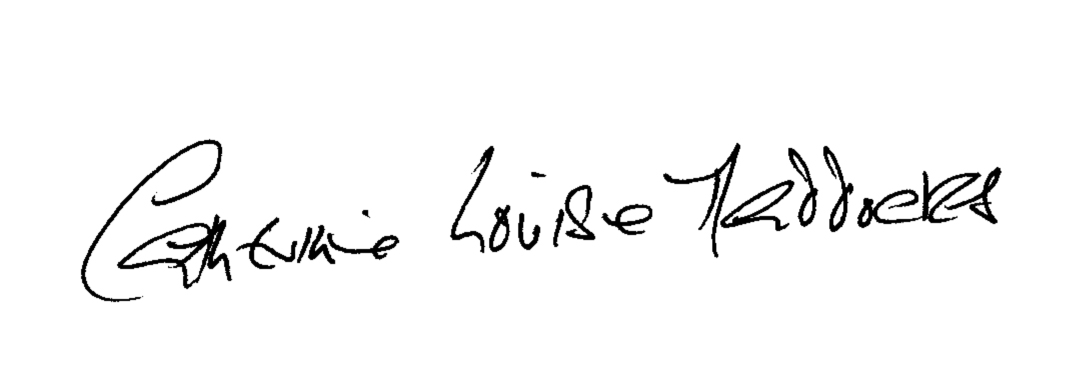 Catherine Louise Maddocks